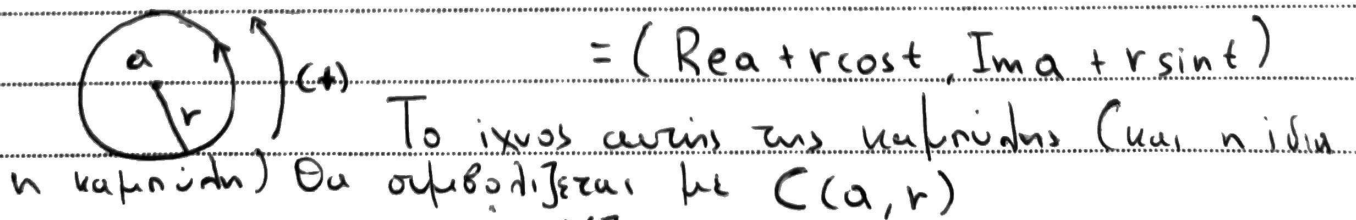 a r (+) = (Rea + rcost, Im a + r sint)
Το ίχνος αυτής της καμπύλης (και η ίδια
η καμπύλη) θα συμβολίζεται με C(a, r)